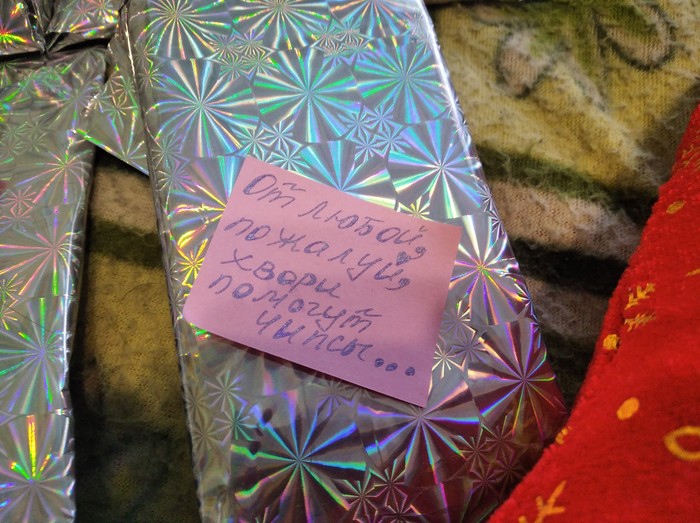 От любой,
пожалуй,
хвори
помогут
чипсы...